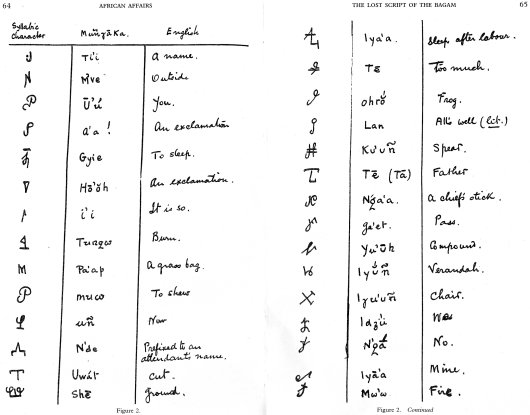 64 AFRICAN AFFAIRS
Syllabic Character Muñyāka. English
Ti'i A name.
Mve Outside
Ū'ú You.
a'a! An exclamation
Gyie To sleep.
Hō'ŏh An exclamation.
i'i It is so.
Burn.
Pa'ap A grass bag.
muco To shew
uñ Now
N'de Prefixed to an
attendant's name.
Uwát Cut.
Shē Ground.
Figure 2.
THE LOST SCRIPT OF THE BAGAM 65
Iya'a. Sleep after labour.
Tē Too much.
ohrŏ Frog.
Lan All's well (lit.)
Ku'uñ Spear.
Tē (Tā) Father
A chief's stick.
Pass.
Yu'ŭh Compound.
Verandah.
Iyu'uñ Chair.
No.
Iyā'a Mine.
Mw'w Fire.
Figure 2. Continued